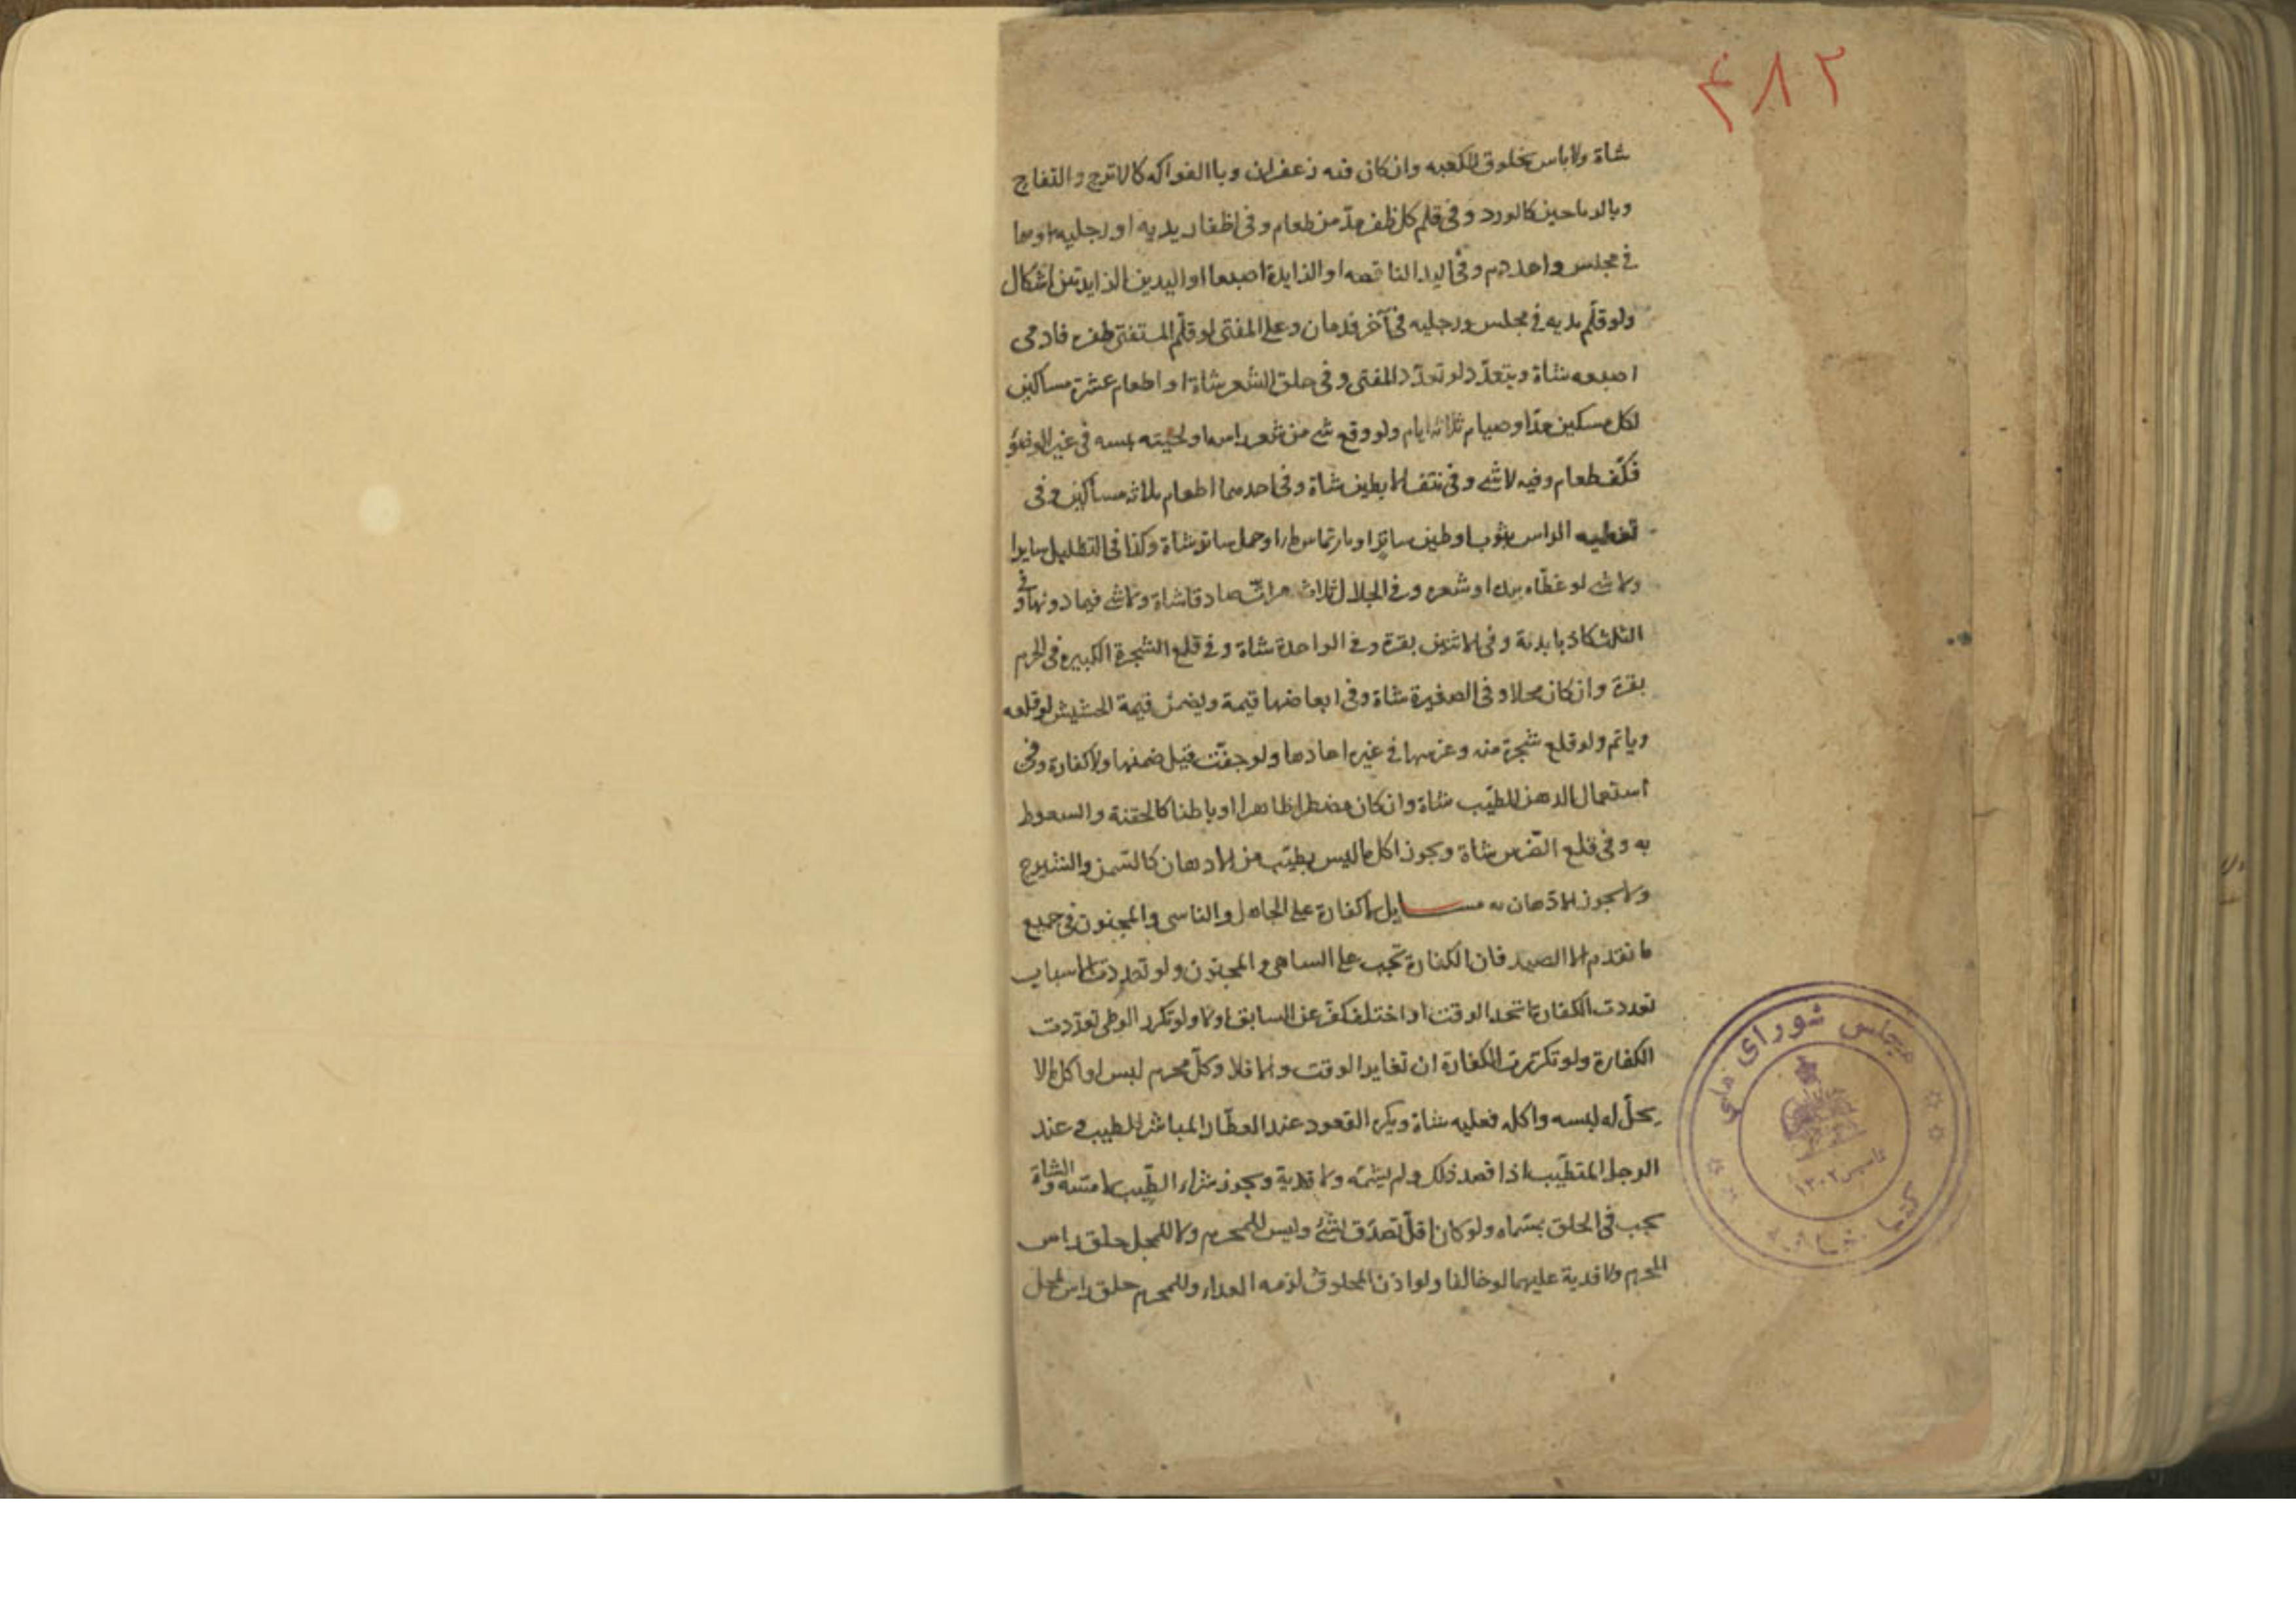 ۴۸۲
شاة ولاباس بخلوق الكعبه وان كان فيه زعفران وباالفواكه كالاترج والتفاح
وبالرياحين كالورد وفى قلم كل ظفر مدّ من طعام وفى اظفار يديه او رجليه او هما
فى مجلس واحد دم وفى اليد الناقصه او الزايدة اصبعا او اليدين الزايدتين اشكال
ولو قلّم يديه فى مجلس ورجليه فى آخر فدمان وعلى المفتى لو قلّم المستفتى ظفره فادمى
اصبعه شاة ويتعدّد لو تعدّد المفتى وفى حلق الشعر شاة او اطعام عشرة مساكين
لكل مسكين مدّ او صيام ثلاثه ايام ولو وقع شى من شعر راسه او لحيته بمسه فى غير الوضوء
فكفّ طعام وفيه لا شى وفى نتف الابطين شاة وفى احدهما اطعام ثلاثه مساكين وفى
تغطيه الراس بثوب او طين ساتر او بارتماس او حمل ساتر شاة وكذا فى التظليل سايرا
ولا شى لو غطّاه بيده او شعره وفى الجدال ثلاث مرات صادقا شاة ولا شى فيما دونها وفى
الثلث كاذبا بدنة وفى الاثنين بقرة وفى الواحدة شاة وفى قلع الشجرة الكبيره فى الحرم
بقرة وان كان محلا وفى الصغيرة شاة وفى ابعاضها قيمة ويضمن قيمة الحشيش لو قلعه
وياثم ولو قلع شجرة منه وغرسها فى غيره اعادها ولو جفّت قيل ضمنها ولا كفارة وفى
استعمال الدهن الطيّب شاة وان كان مضطرا ظاهرا او باطنا كالحقنة والسعوط
به وفى قلع الضّرس شاة ويجوز اكل ما ليس بطيّب من الادهان كالسّمن والشيرج
ولا يجوز الادّهان به مسايل لا كفارة على الجاهل والناسى والمجنون فى جميع
ما تقدم الا الصيد فان الكفارة تجب على الساهى والمجنون ولو تعددت الاسباب
تعددت الكفارة اتحد الوقت او اختلف كفّر عن السابق او لا ولو تكرر الوطى تعدّدت
الكفارة ولو تكررت الكفارة ان تغاير الوقت والا فلا وكلّ محرم لبس او اكل ما لا
يحلّ له لبسه واكله فعليه شاة ويكره القعود عند العطّار المباشر للطيب وعند
الرجل المتطيّب اذا قصد ذلك ولم يشمّه ولا فدية ويجوز شراء الطّيب لا مسّه والشاة
تجب فى الحلق بمسماه ولو كان اقلّ تصدّق بشئ وليس للمحرم ولا للمحل حلق راس
المحرم ولا فدية عليهما لو خالفا ولو اذن المحلوق لزمه الفداء وللمحرم حلق راس المحل
مجلس شورای ملی
تاسیس ۱۳۰۲
کتابخانه